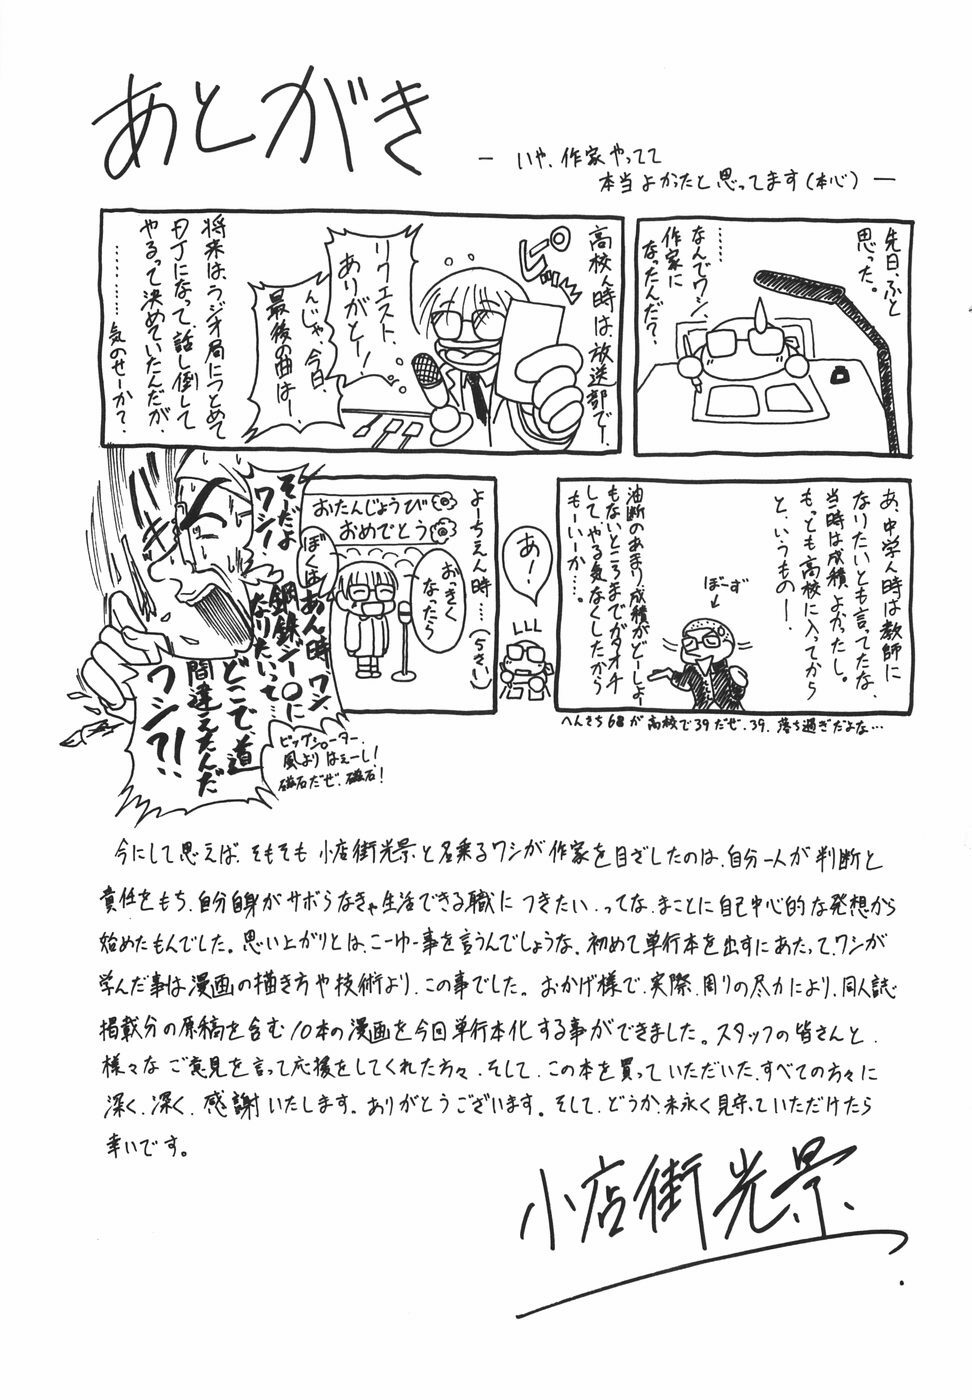 あとがき
― いや、作家やってて
本当よかったと思ってます(本心) ―
先日、ふと
思った。
……
なんでワシ、
作家に
なったんだ?
高校ん時は、放送部でー、
ピロ
リクエスト、
ありがとー!
んじゃ、今日、
最後の曲はー、
将来は、ラジオ局につとめて
DJになって、話し倒して
やるって決めていたんだが、
………気のせーか?
あ、中学ん時は教師に
なりたいとも言ってたな、
当時は成積よかったし。
もっとも高校に入ってから
と、いうものー、
ぼーず
油断のあまり、成積がどーしよー
もないところまでガタオチ
して、やる気なくしたから
もーいーか…。
へんさち68が高校で39だぜ、39、落ち過ぎだよな…
あ!
よーちえん時…(ちさい)
おたんじょうび
おめでとう
おっきく
なったら
ぼくは
そーだよ
ワシ!
あん時、ワシ、
鋼鉄ジー○に
なりたいって…
どこで、道
間違えたんだ
ワシ?!
ビッグシューター、
風よりはえーし!
磁石だぜ、磁石!
今にして思えば、そもそも小店街光景と名乗るワシが作家を目ざしたのは、自分一人が判断と
責任をもち、自分自身がサボらなきゃ生活できる職につきたい、ってな、まことに自己中心的な発想から
始めたもんでした。思い上がりとは、こーゆー事を言うんでしょうな、初めて単行本を出すにあたって、ワシが
学んだ事は漫画の描き方や技術より、この事でした。おかげ様で、実際、周りの尽力により、同人誌
掲載分の原稿を含む10本の漫画を今回単行本化する事ができました。スタッフの皆さんと、
様々なご意見を言って応援をしてくれた方々、そして、この本を買っていただいた、すべての方々に
深く、深く、感謝いたします。ありがとうございます。そして、どうか、末永く見守っていただけたら
幸いです。
小店街光景.